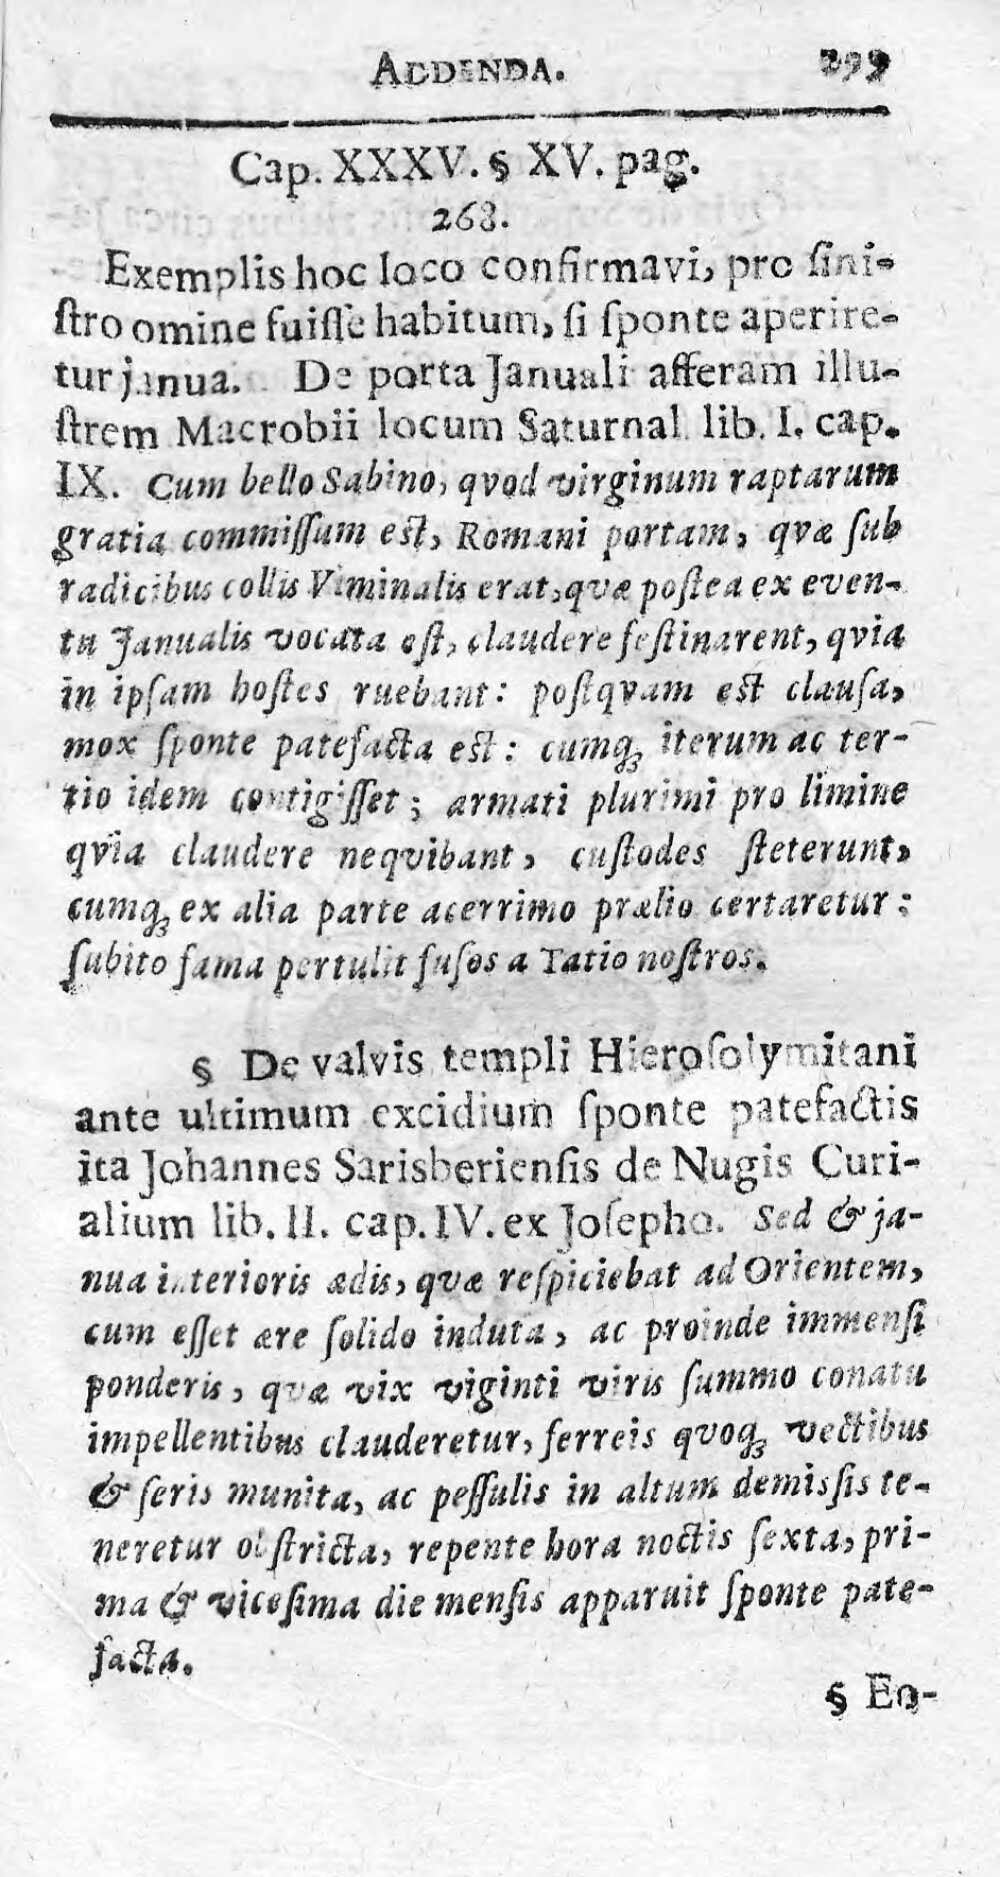 ADDENDA. 299
Cap. XXXV. § XV. pag.
268.
Exemplis hoc loco confirmavi, pro ſini-
ſtro omine fuiſſe habitum, ſi ſponte aperire-
tur janua. De porta Januali afferam illu-
ſtrem Macrobii locum Saturnal. lib. I. cap.
IX. Cum bello Sabino, qvod virginum raptarum
gratia commiſſum eſt, Romani portam, qvæ ſub
radicibus collis Viminalis erat, qvæ poſtea ex even-
tu Janualis vocata eſt, claudere feſtinarent, qvia
in ipſam hoſtes ruebant: poſtqvam eſt clauſa,
mox ſponte patefacta eſt: cumq́ꝫ iterum ac ter-
tio idem contigiſſet; armati plurimi pro limine
qvia claudere neqvibant, cuſtodes ſteterunt,
cumq́ꝫ ex alia parte acerrimo prælio certaretur:
ſubito fama pertulit fuſos a Tatio noſtros.
§ De valvis templi Hieroſolymitani
ante ultimum excidium ſponte patefactis
ita Johannes Sarisberienſis de Nugis Curi-
alium lib. II. cap. IV. ex Joſepho. Sed & ja-
nua interioris ædis, qvæ reſpiciebat ad Orientem,
cum eſſet ære ſolido induta, ac proinde immenſi
ponderis, qvæ vix viginti viris ſummo conatu
impellentibus clauderetur, ferreis qvoq́ꝫ vectibus
& ſeris munita, ac peſſulis in altum demiſſis te-
neretur obſtricta, repente hora noctis ſexta, pri-
ma & viceſima die menſis apparuit ſponte pate-
facta.
§ Eo-